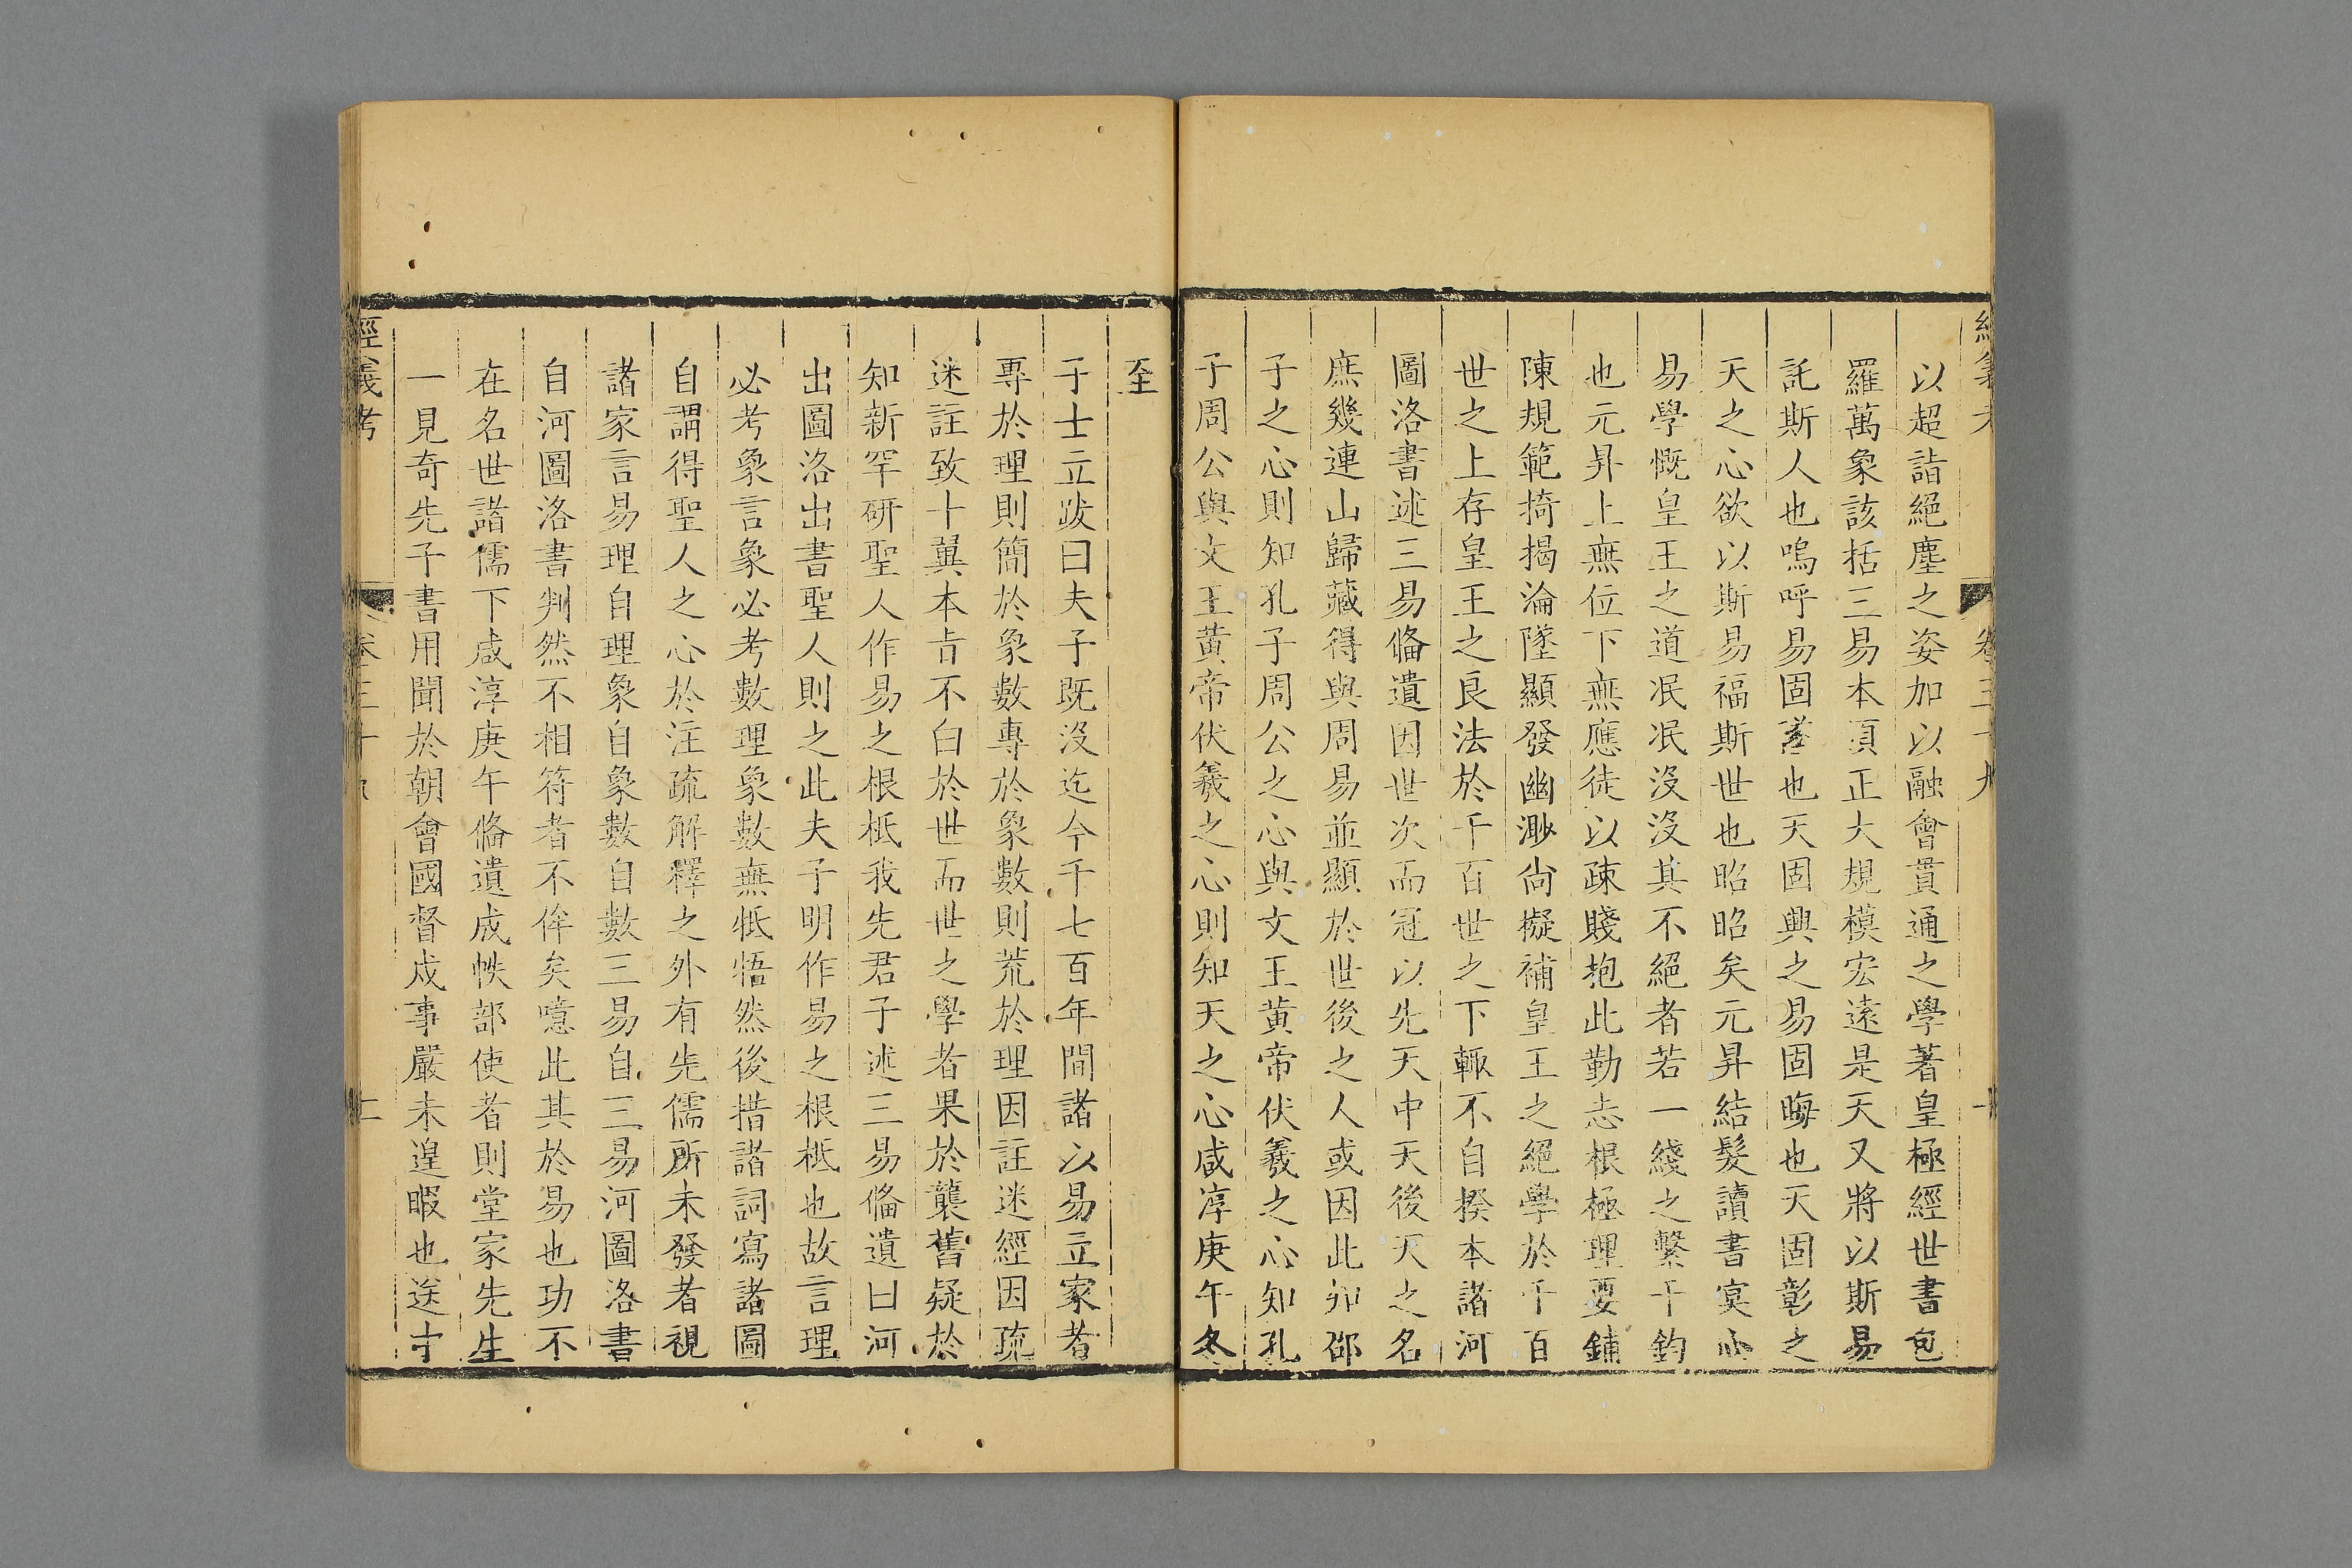 以超詣絕塵之姿加以融會貫通之學著皇極經世書包
羅萬象該括三易本頂正大規模宏遠是天又將以斯易
託斯人也嗚呼易固蓍也天固興之易固晦也天固彰之
天之心欲以斯易福斯世也昭昭矣元昇結髮讀書寘心
易學慨皇王之道泯泯沒沒其不絕者若一綫之繫千鈞
也元昇上無位下無應徒以疎賤抱此勤志根極理要鋪
陳規範掎揭淪墜顯發幽渺尙擬補皇王之絕學於千百
世之上存皇王之良法於千百世之下輙不自揆本諸河
圖洛書述三易俻遺因世次而冠以先天中天後天之名
庶幾連山歸藏得與周易並顯於世後之人或因此知邵
子之心則知孔子周公之心與文王黃帝伏羲之心知孔
子周公與文王黃帝伏羲之心則知天之心咸淳庚午冬
至
子士立跋曰夫子既沒迄今千七百年間諸以易立家者
專於理則簡於象數專於象數則荒於理因註迷經因疏
迷註致十翼本旨不白於世而世之學者果於襲舊疑於
知新罕研聖人作易之根柢我先君子述三易俻遺曰河
出圖洛出書聖人則之此夫子明作易之根柢也故言理
必考象言象必考數理象數無牴牾然後措諸詞寫諸圖
自謂得聖人之心於注疏解釋之外有先儒所未發者視
諸家言易理自理象自象數自數三易自三易河圖洛書
自河圖洛書判然不相符者不侔矣噫此其於易也功不
在名世諸儒下咸淳庚午俻遺成帙部使者則堂家先生
一見奇先子書用聞於朝會國督戍事嚴未遑暇也送才
經義考